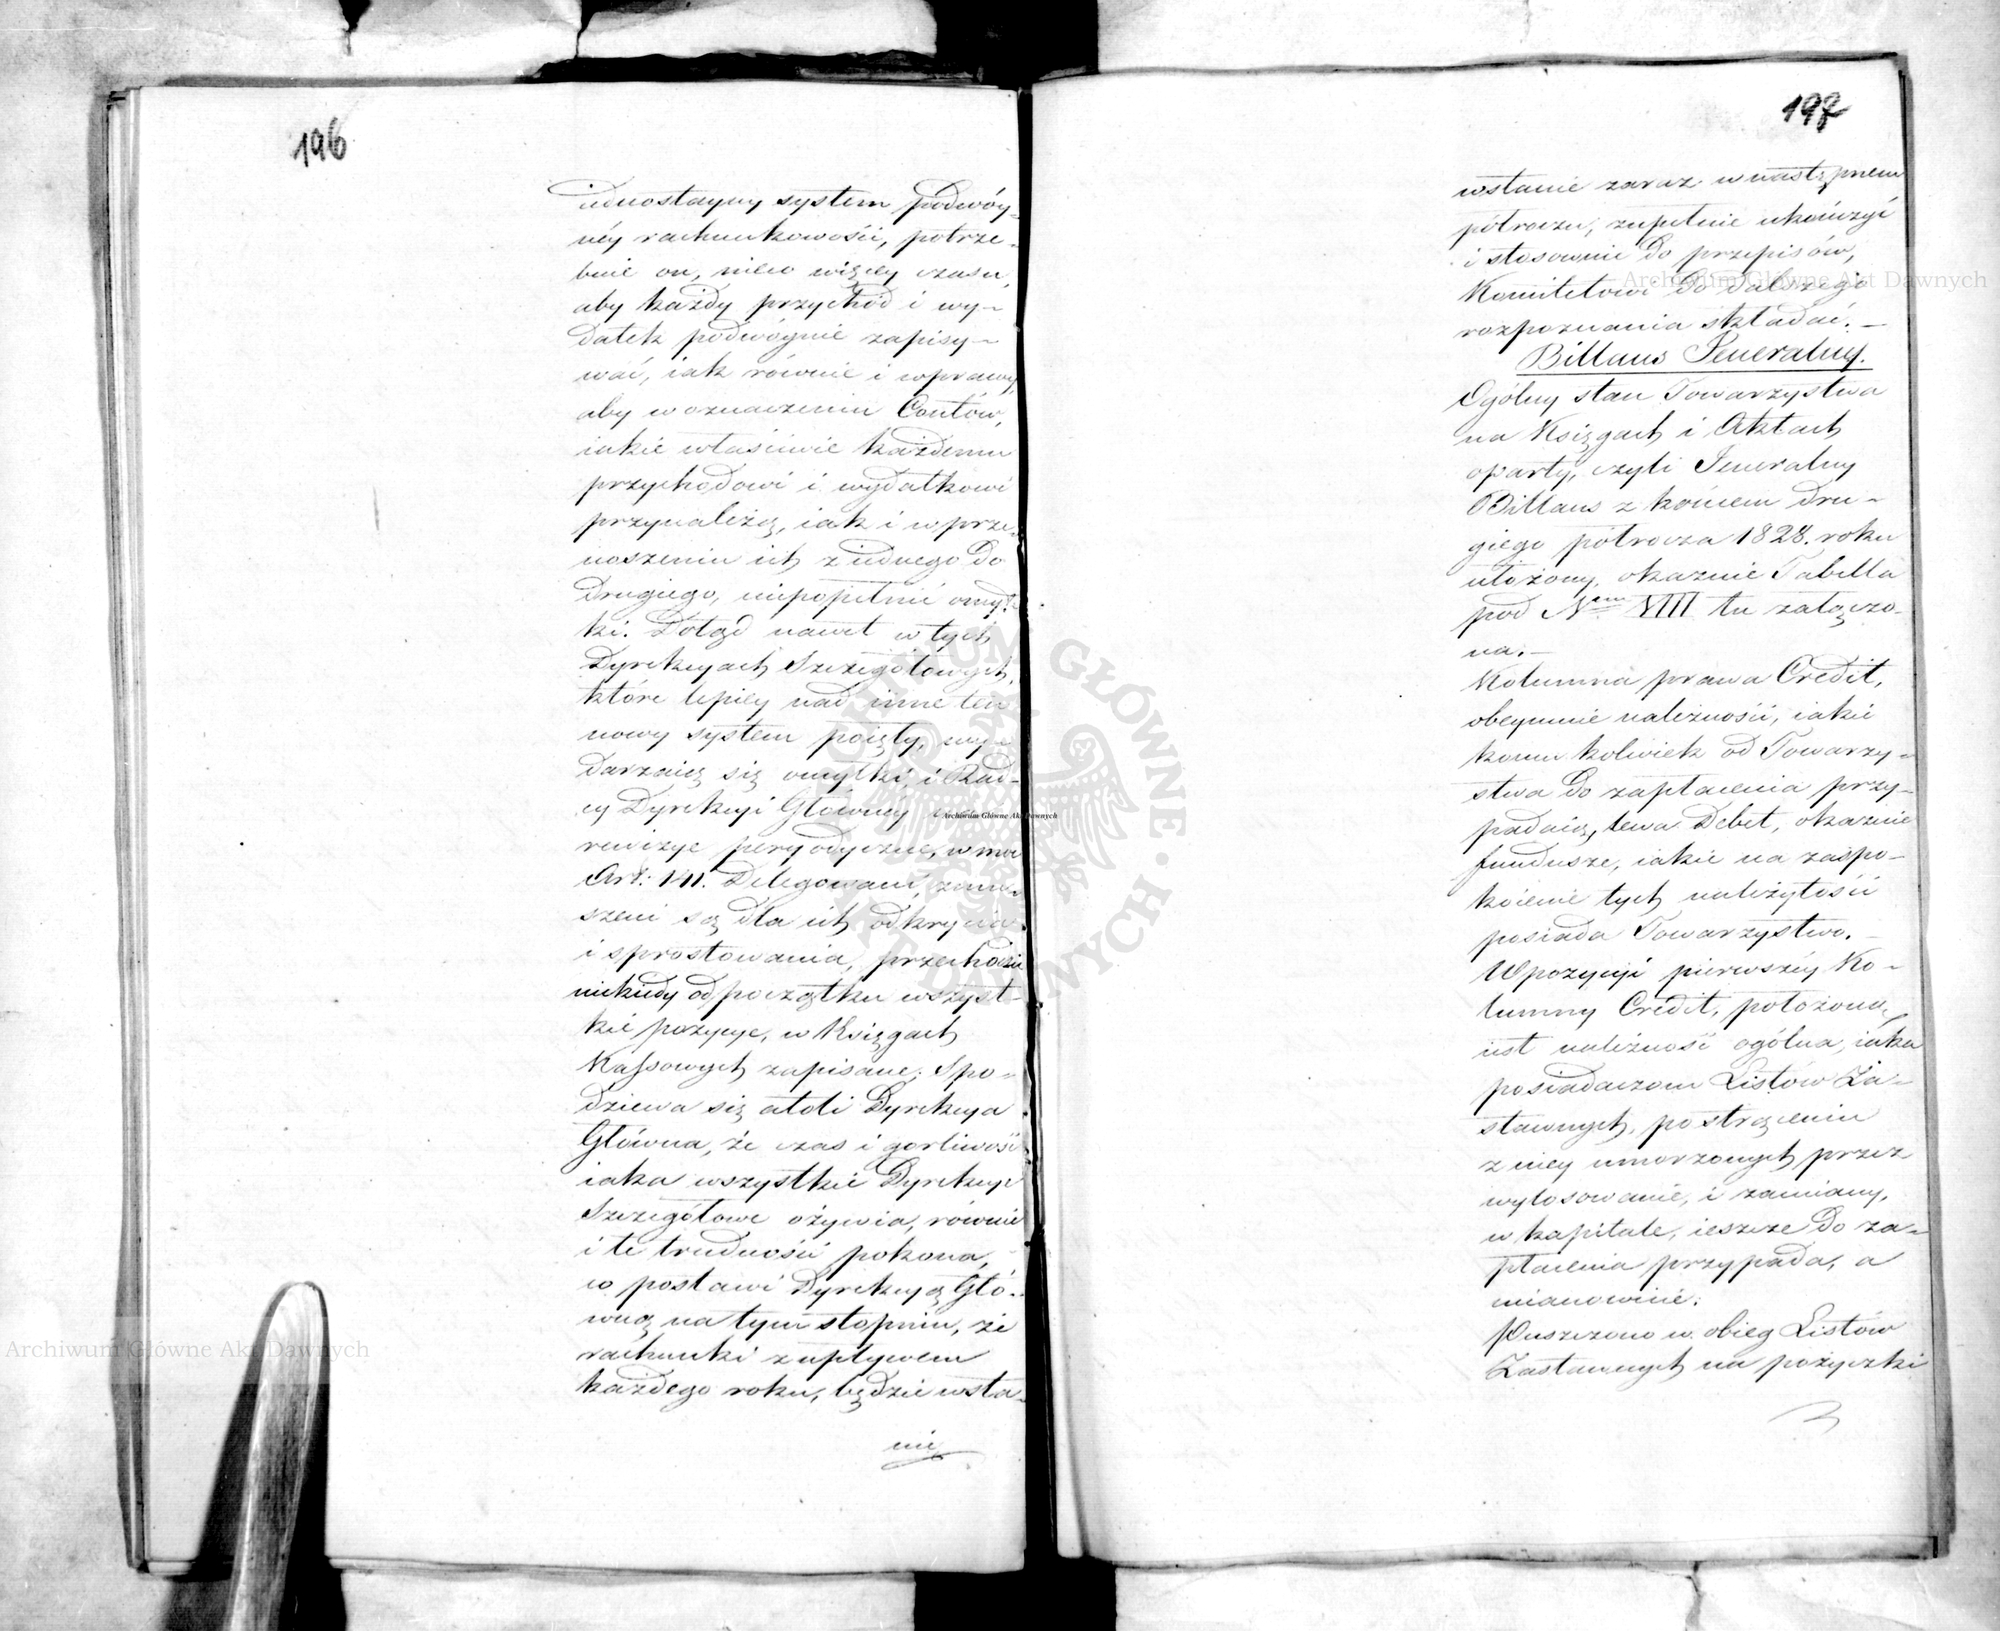 196
iednostayny system podwóy-
néy rachunkowości, potrze-
buie on, nieco więcey czasu,
aby każdy przychód i wy-
datek podwóynie zapisy-
wać, iak równie i wprawy,
aby w oznaczeniu Contów,
iakie właściwie każdemu
przychodowi i wydatkowi
przynależą, iak i w prze-
noszeniu ich z iednego do
drugiego, niepopełnić omył-
ki. Dotąd nawet w tych
Dyrekcyach Szczegółowych,
które lepiey nad inne ten
nowy system poięły, wy-
darzaią się omyłki, i Rad-
cy Dyrekcyi Główney na
rewizye peryodyczne, w moc
Art: 141. Delegowani, zmu-
szeni są dla ich odkrycia
i sprostowania, przechodzić
niekiedy od początku wszyst-
kie pozycye, w Księgach
Kassowych zapisane. Spo-
dziewa się atoli Dyrekcya
Główna, że czas i gorliwość
iaka wszystkie Dyrekcye
Szczegółowe ożywia, równie
i te trudności pokona,
co postawi Dyrekcyą Głó-
wną na tym stopniu, że
rachunki z upływem
każdego roku, będzie wsta-
nie
197
wstanie zaraz w następnem
półroczu, zupełnie ukończyć
i stosownie do przepisów,
Komitetowi do dalszego
rozpoznania składać. —
Billans Jeneralny.
Ogólny stan Towarzystwa
na Księgach i Aktach
oparty, czyli Jeneralny
Billans z końcem dru-
giego półrocza 1828. roku
ułożony, okazuie Tabella
pod Nem VIII tu załączo-
na. —
Kolumna prawa Credit,
obeymuie należności, iakie
komu kolwiek od Towarzy-
stwa do zapłacenia przy-
padaią, lewa Debet, okazuie
fundusze, iakie na zaspo-
koienie tych należytości
posiada Towarzystwo. —
W pozycyi pierwszéy Ko-
lumny Credit, położona
iest należność ogólna, iaka
posiadaczom Listów Za-
stawnych, po strąceniu
z niey umorzonych przez
wylosowanie, i zamiany,
w kapitale, ieszcze do za-
płacenia przypada, a
mianowicie:
Puszczono w obieg Listów
Zastawnych na pożyczki
Archiwum Główne Akt Dawnych
Archiwum Główne Akt Dawnych
Archiwum Główne Akt Dawnych